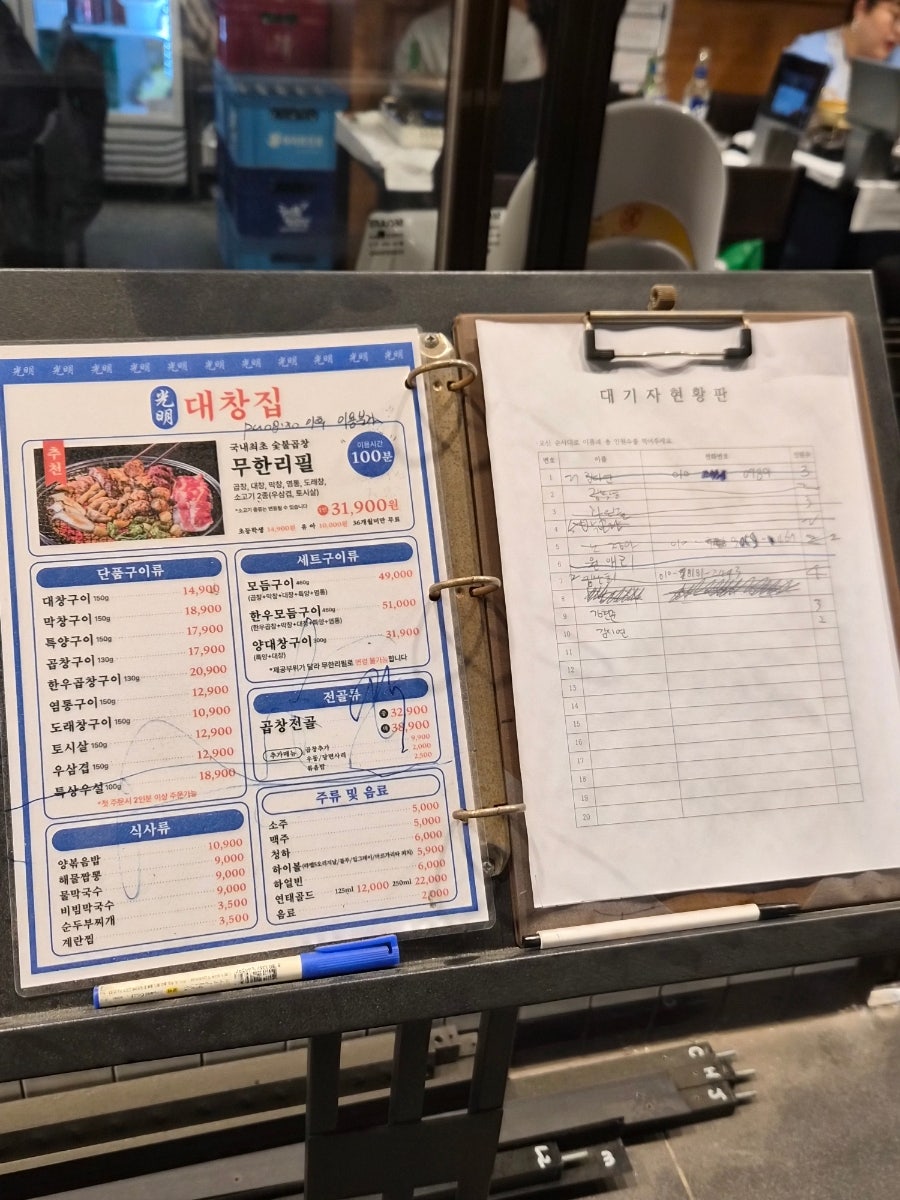 光明 光明 光明 光明 光明 光明 光明 光明 光明 光明 光明
光明 대창집
이후 이용불가
추천
국내최초 숯불곱창
무한리필
이용시간
100분
곱창, 대창, 막창, 염통, 도래창,
소고기 2종(우삼겹, 토시살)
*소고기 종류는 변동될 수 있습니다
31,900원
초등학생 14,900원 유아 10,000원 36개월미만 무료
단품구이류
대창구이 150g 14,900
막창구이 150g 18,900
특양구이 150g 17,900
곱창구이 130g 17,900
한우곱창구이 130g 20,900
염통구이 150g 12,900
도래창구이 150g 10,900
토시살 150g 12,900
우삼겹 150g 12,900
특상우설 100g 18,900
*첫 주문시 2인분 이상 주문가능
세트구이류
모듬구이 460g 49,000
(곱창+막창+대창+특양+염통)
한우모듬구이 450g 51,000
(한우곱창+막창+대창+특양+염통)
양대창구이 300g 31,900
(특양+대창)
*제공부위가 달라 무한리필로 변경 불가능합니다
전골류
곱창전골 중 32,900
대 38,900
추가메뉴 곱창추가 9,900
우동/당면사리 2,000
볶음밥 2,500
식사류
양볶음밥 10,900
해물짬뽕 9,000
물막국수 9,000
비빔막국수 9,000
순두부찌개 3,500
계란찜 3,500
주류 및 음료
소주 5,000
맥주 5,000
청하 6,000
하이볼 5,900
하얼빈 6,000
연태골드 125ml 12,000 250ml 22,000
음료 2,000
대기자현황판
·오신 순서대로 이름과 총 인원수를 적어주세요
번호 이름 전화번호 인원수
1 3
2
3 3
4
5
6
7 4
8
9 3
10 김지연 2
11
12
13
14
15
16
17
18
19
20